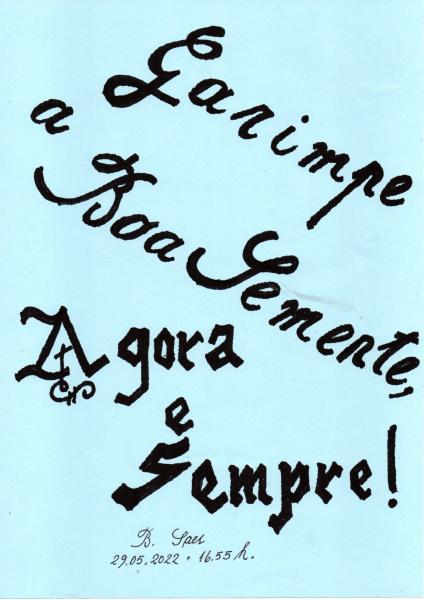 Garimpe
a Boa Semente,
Agora
e
Sempre!
B. Spes
29.05.2022 • 16.55 h.